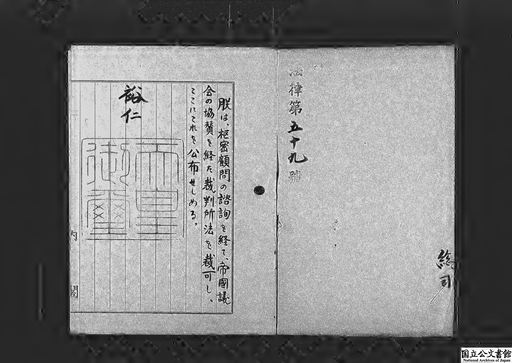 法律第五十九號
総司
朕は、枢密顧問の諮詢を経て、帝國議
会の協賛を経た裁判所法を裁可し、
ここにこれを公布せしめる。
裕仁
天皇
御璽
内閣
国立公文書館
National Archives of Japan